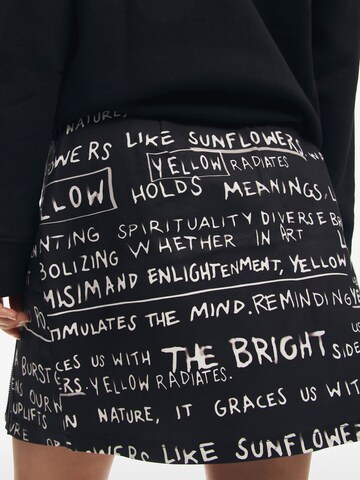 NATURE,
OWERS LIKE SUNFLOWERS
YELLOW RADIATES
LLOW HOLDS MEANINGS,
NTING SPIRITUALITY DIVERSE BR
BOLIZING WHETHER IN ART
MISIMAND ENLIGHTENMENT, YELLOW
TIMULATES THE MIND. REMINDING
A BURST CES US WITH THE BRIGHT SIDE
ENS OUR ERS. YELLOW RADIATES.
UPLIFTS IN NATURE, IT GRACES US WIT
FLOWERS LIKE SUNFLOWER